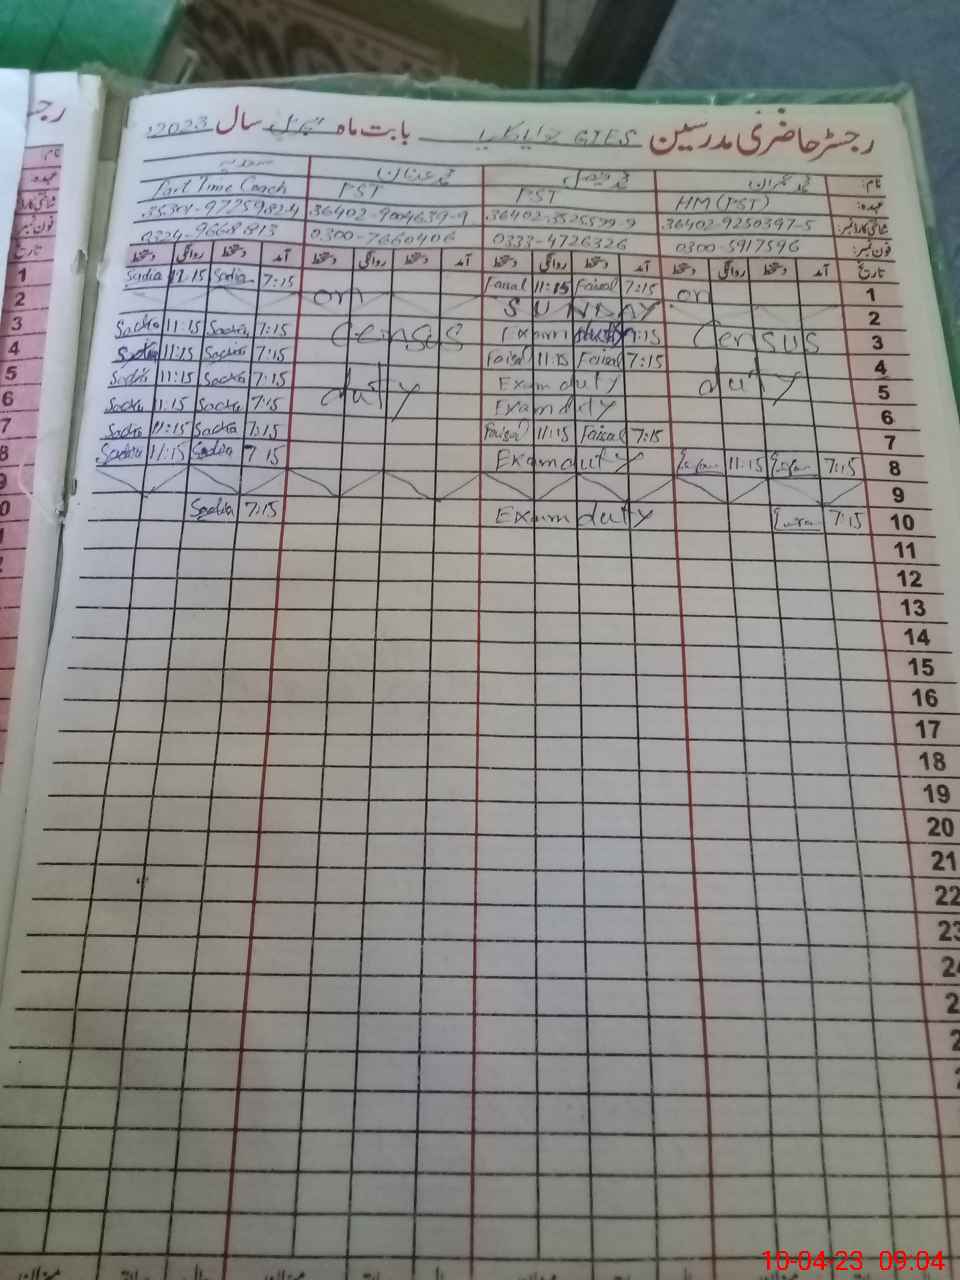 رجسٹر حاضری مدرسین GIES بابت ماہ اپریل سال 2023ء
نام: محمد عمران محمد فیصل محمد عدنان سعدیہ
عہدہ: HM (PST) PST PST Part Time Coach
شناختی کارڈ نمبر: 36402-9250397-5 36402-3525599-9 36402-9004639-9
فون نمبر: 0300-5917596 0333-4726326 0300-7660406 0324-9668813
تاریخ آمد دستخط روانگی دستخط آمد دستخط روانگی دستخط آمد دستخط روانگی دستخط آمد دستخط روانگی دستخط
1 7:15 Faisal 11:15 Faisal 7:15 Sadia 11:15 Sadia
2 on SUNDAY on
3 Census Exam duty 7:15 Census 7:15 Sadia 11:15 Sadia
4 7:15 Faisal 11:15 Faisal 7:15 Sadia 11:15 Sadia
5 duty Exam duty duty 7:15 Sadia 11:15 Sadia
6 Exam duty 7:15 Sadia 11:15 Sadia
7 7:15 Faisal 11:15 Faisal 7:15 Sadia 11:15 Sadia
8 7:15 11:15 Exam duty 7:15 Sadia 11:15 Sadia
9
10 7:15 Exam duty 7:15 Sadia
11
12
13
14
15
16
17
18
19
20
21
22
23
10-04-23 09:04